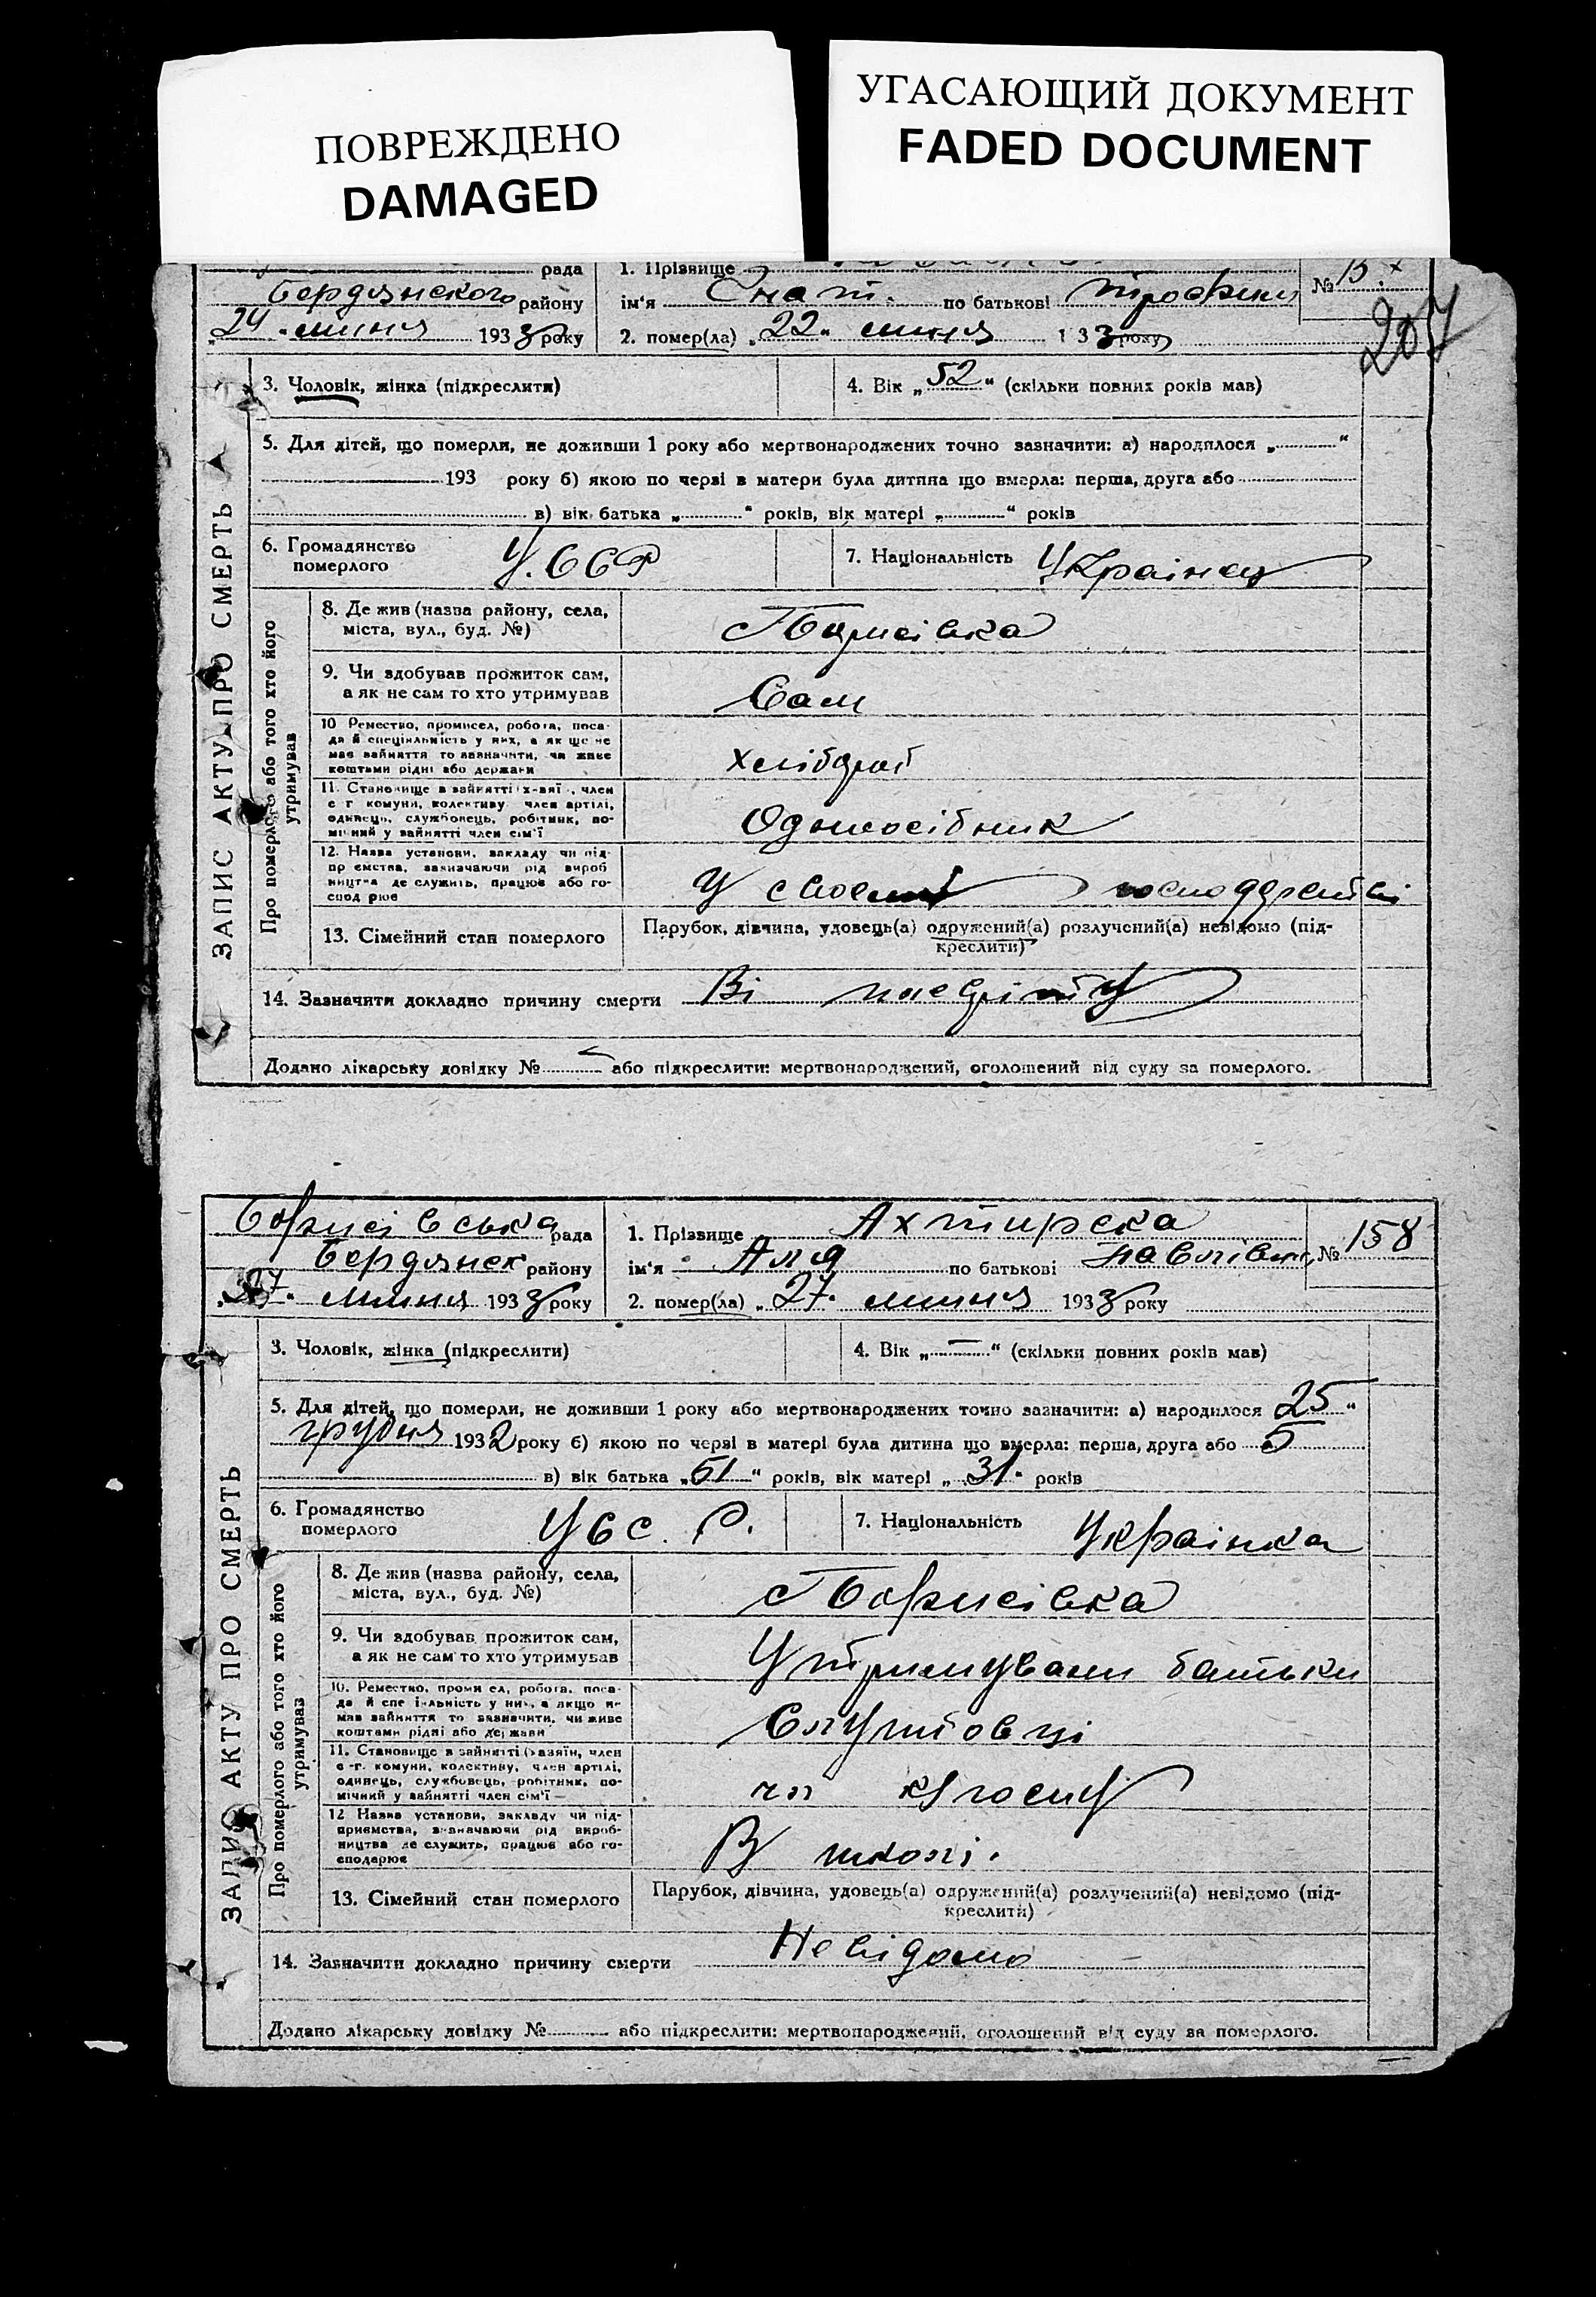 ПОВРЕЖДЕНО
DAMAGED
УГАСАЮЩИЙ ДОКУМЕНТ
FADED DOCUMENT
рада
1. Прізвище
Бердянского району
ім'я Гнат. по батькові Трофим №
207
"24" липня 1933 року
2. помер(ла) "22" липня 1 33 року
ЗАПИС АКТУ ПРО СМЕРТЬ
3. Чоловік, жінка (підкреслити)
4. Вік „52" (скільки повних років мав)
5. Для дітей, що померли, не доживши 1 року або мертвонароджених точно зазначити: а) народилося „ "
193 року б) якою по черзі в матери була дитина що вмерла: перша, друга або
в) вік батька „ " років, вік матері „ " років
6. Громадянство
померлого
У.ССР
7. Національність Українец
Про померлого або того хто його
утримував
8. Де жив (назва району, села,
міста, вул., буд. №)
с Борисівка
9. Чи здобував прожиток сам,
а як не сам то хто утримував
Сам
10 Ремество, промисел, робота, поса-
да й спеціяльність у них, а як що не
має зайняття то зазначити, чи живе
коштами рідні або держави
хлібороб
11. Становище в зайнятті х-вяї , член
с г комуни, колективу член артілі,
одинець, службовець, робітник, по-
мічний у зайнятті член сім'ї
Одноосібник
12. Назва установи, закладу чи під-
пр ємства, зазначаючи рід вироб
ництва де служить, працює або го-
спод рює
У своему господарстві
13. Сімейний стан померлого
Парубок, дівчина, удовець(а) одружений(а) розлучений(а) невідомо (під-
креслити)
14. Зазначити докладно причину смерти Ві
Додано лікарську довідку № або підкреслити: мертвонароджений, оголошений від суду за померлого.
Борисівська рада
1. Прізвище Ахтирска
№ 158
Бердянск району
ім'я Аля по батькові Павлівна
"27" липня 1933 року
2. помер(ла) „27" липня 1933 року
ЗАПИС АКТУ ПРО СМЕРТЬ
3. Чоловік, жінка (підкреслити)
4. Вік „—" (скільки повних років мав)
5. Для дітей, що померли, не доживши 1 року або мертвонароджених точно зазначити: а) народилося 25"
грудня 1932 року б) якою по черзі в матері була дитина що вмерла: перша, друга або 5
в) вік батька „51" років, вік матері „31" років
6. Громадянство
померлого
УСС. Р.
7. Національність Українка
Про померлого або того хто його
утримував
8. Де жив (назва району, села,
міста, вул., буд. №)
с Борисівка
9. Чи здобував прожиток сам,
а як не сам то хто утримував
Утримували батьки
10. Ремество, проми ел, робота, поса-
да й спе іяльність у них, а якщо не
має зайняття то зазначити, чи живе
коштами рідні або держави
Службовці
11. Становище в зайнятті (хазяїн, член
с -г. комуни, колективу, член артілі,
одинець, службовець, робітник, по-
мічний у зайнятті член сім'ї —
чл
12 Назва установи, закладу чи під-
приємства, зазначаючи рід вироб-
ництва де служить, працює або го-
сподарює
В школі.
13. Сімейний стан померлого
Парубок, дівчина, удовець(а) одружений(а) розлучений(а) невідомо (під-
креслити)
14. Зазначити докладно причину смерти Невідомо
Додано лікарську довідку № або підкреслити: мертвонароджений, оголошений від суду за померлого.